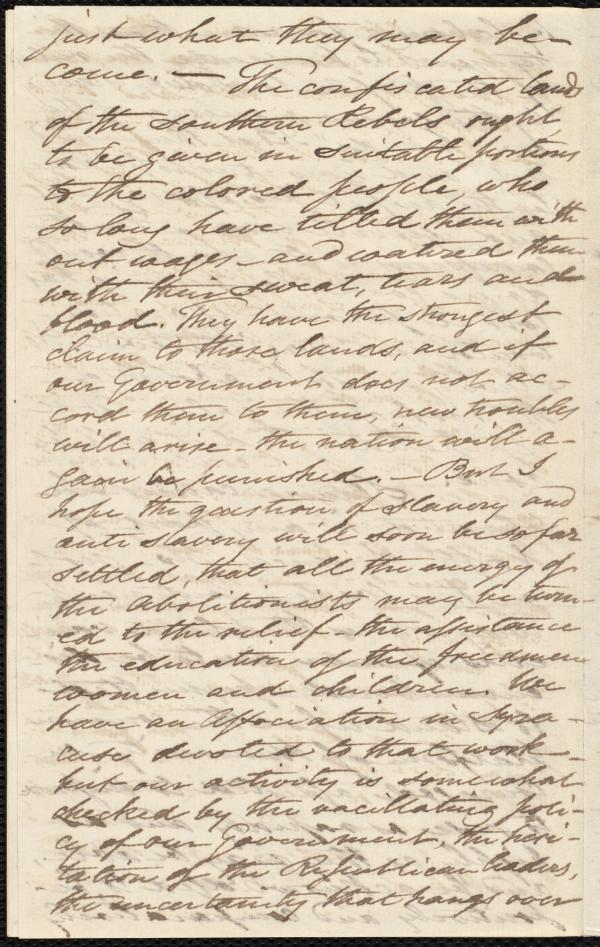 just what they may be-
come. — The confiscated lands
of the Southern Rebels ought
to be given in suitable portions
to the colored people, who
so long have tilled them with
out wages - and watered them
with their sweat, tears and
blood. They have the strongest
claim to those lands, and if
our Government does not ac-
cord them to them, new troubles
will arise - the nation will a-
gain be punished. — But I
hope the question of slavery and
anti slavery will soon be so far
settled, that all the energy of
the Abolitionists may be turn-
ed to the relief - the assistance
the education of the freedmen
women and children. We
have an Association in Syra-
cuse devoted to that work -
but our activity is somewhat
checked by the vacillating poli-
cy of our Government, the hesi-
tation of the Republican leaders,
the uncertainty that hangs over